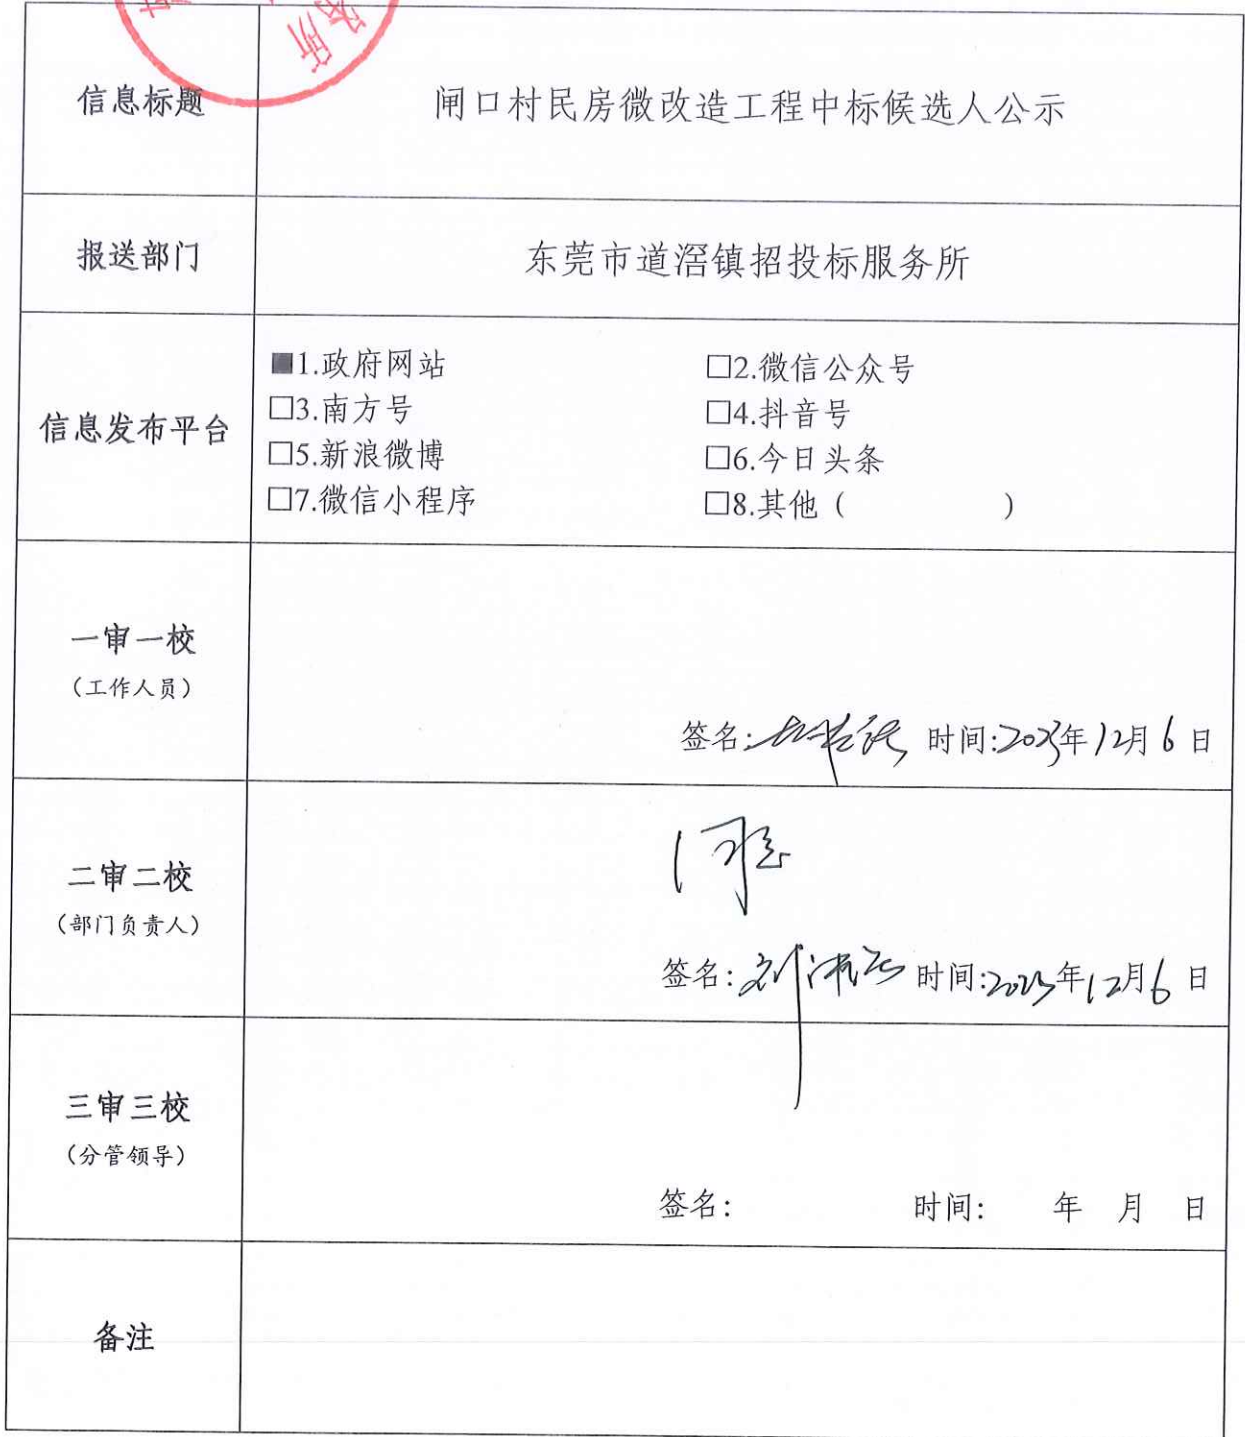 务所
信息标题
闸口村民房微改造工程中标候选人公示
报送部门
东莞市道滘镇招投标服务所
信息发布平台
■1.政府网站 □2.微信公众号
□3.南方号 □4.抖音号
□5.新浪微博 □6.今日头条
□7.微信小程序 □8.其他（ ）
一审一校
（工作人员）
签名: 时间:2023年12月6日
二审二校
（部门负责人）
同意
签名: 时间:2023年12月6日
三审三校
（分管领导）
签名: 时间: 年 月 日
备注